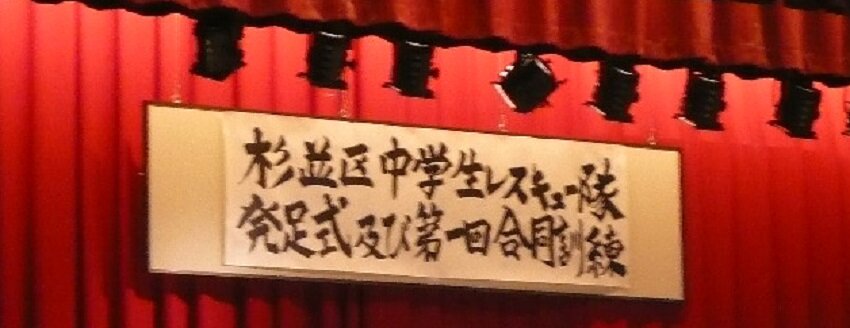 杉並区中学生レスキュー隊
発足式及び第一回合同訓練